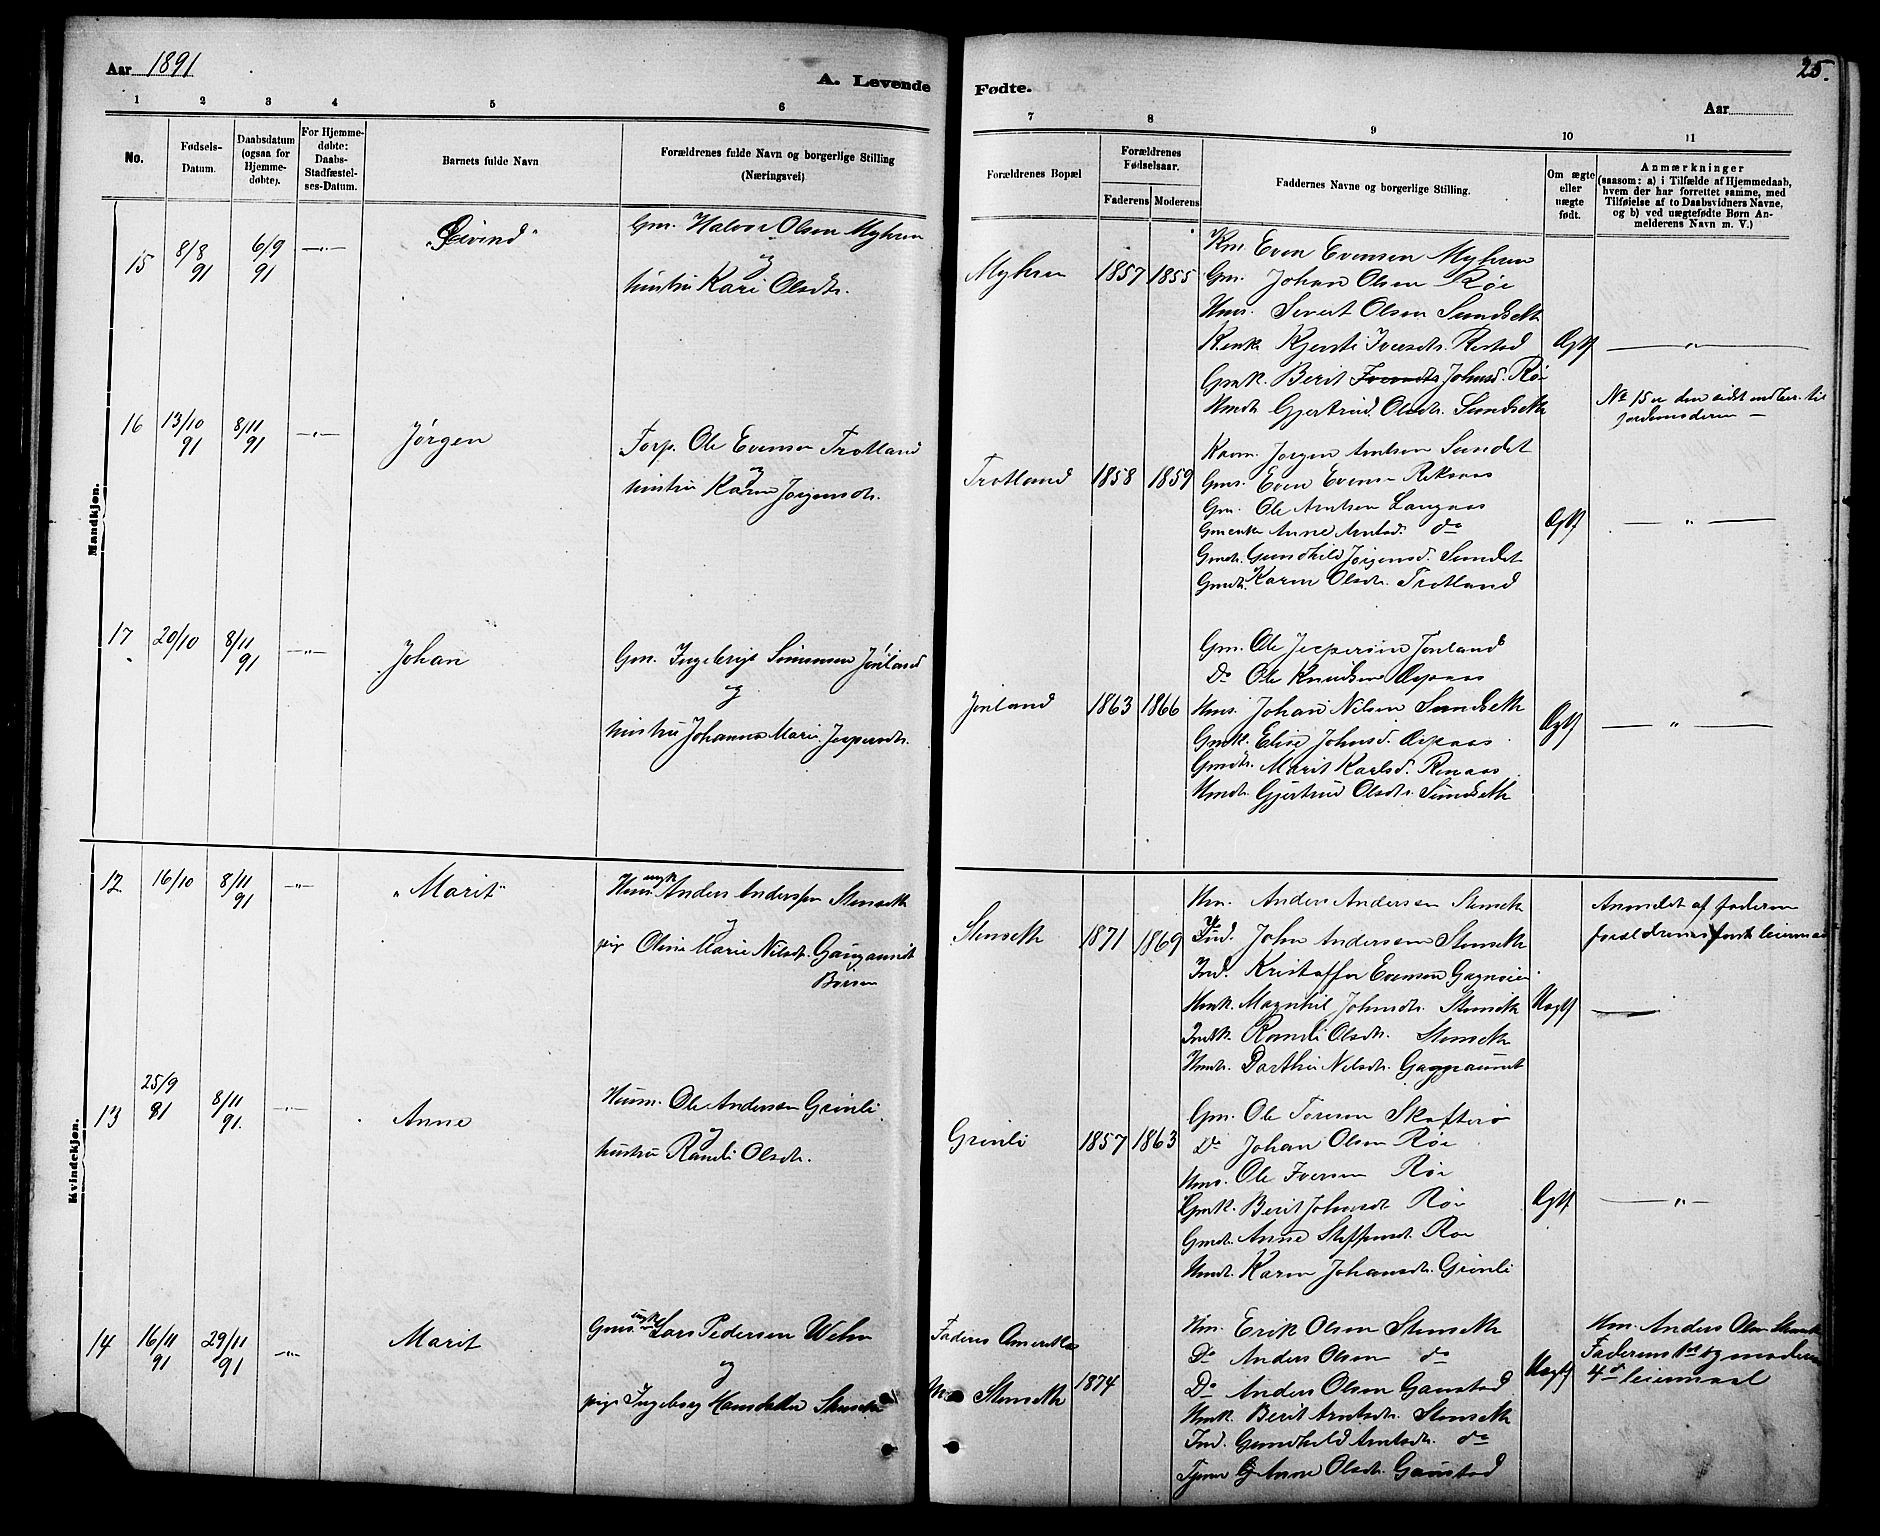 Aar 1891
A. Levende Fødte.
25.
Aar
1 2 3 4 5 6 7 8 9 10 11
No.
Fødsels-
Datum.
Daabsdatum
(ogsaa for
Hjemme-
døbte).
For Hjemme-
døbte:
Daabs-
Stadfæstel-
ses-Datum.
Barnets fulde Navn
Forældrenes fulde Navn og borgerlige Stilling
(Næringsvei)
Forældrenes Bopæl
Forældrenes
Fødselsaar.
Faderens
Moderens
Faddernes Navne og borgerlige Stilling.
Om ægte
eller
uægte
født.
Anmærkninger
(saasom: a) i Tilfælde af Hjemmedaab,
hvem der har forrettet samme, med
Tilføielse af to Daabsvidners Navne,
og b) ved uægtefødte Børn An-
melderens Navn m. V.)
Mandkjøn.
15 8/8 91 6/9 91 —"—
"Eivind"
Gm. Halvor Olsen Myhren
og
hustru Kari Olsdtr.
Myhren 1857 1855
Km Even Evensen Myhren
Gm. Johan Olsen Røe
Hms. Sivert Olsen Sundseth
Kjersti Iversdtr. Restad
Gmk. Berit Johnsd. Røe
Hmdtr Gjertrud Olsdtr. Sundseth
Ægtf —"—
No 15 er den sidst indber. til
jordemoderen —
16 13/10 91 8/11 91 —"—
Jørgen
Forp. Ole Evensen Trotland
og
hustru Karen Jørgensdtr.
Trotland 1858 1859
Jørgen Arntsen Sundet
Gms. Even Evensen Riksaas
Gm. Ole Arntsen Langaas
Gmenke Anne Arntsd. do
Gmdtr. Gundhild Jørgensd. Sundet
Gmdtr. Karen Olsdtr. Trotland
Ægtf —"—
17 20/10 8/11 91 —"—
Johan
Gm. Ingebrigt Simonsen Jønland
og
hustru Johanna Marie Jespersdtr.
Jønland 1863 1866
Gm. Ole Jespersen Jønland
Do Ole Knudsen Aspaas
Hms. Johan Nilsen Sundseth
Gmk. Elise Johnsd. Aspaas
Gmdtr. Marit Karlsd. Renaas
Hmdtr. Gjertrud Olsdtr. Sundseth
Ægtf —"—
Kvindekjøn.
12 16/10 8/11 91 —"—
"Marit"
Hms ungk Anders Anderssen Stenseth
og
pige Oline Marie Nilsdtr. Gaugaunet
Børsen
Stenseth 1871 1869
Hm. Anders Andersen Stenseth
Ind. John Andersen Stenseth
Ind. Kristoffer Evensen
Hmk. Magnhil Johnsdtr. Stenseth
Indk. Randi Olsdtr. Stenseth
Hmdtr. Dorthea Nilsdtr.
Uægtf
Anmeldt af faderen
forældrenes første leiermaal
13 25/9 91 8/11 91. —"—
Anne
Husm. Ole Andersen Grønli.
og
hustru Randi Olsdtr.
Grønli 1857 1863
Gm. Ole Toresen Skofterø
Do Johan Olsen Røe
Hms. Ole Iversen Røe
Gmk. Berit Johnsdtr Røe
Gmdtr. Anne Steffensdtr. Røe
Hmdtr. Karen Johansdtr. Grønli
Ægtf —"—
14 16/11 91 29/11 91 —"—
Marit
Gms. ungk Lars Pedersen Wehn
og
pige Ingeborg Hansdatter Stenseth
Faderes Amerika
M Stenseth 1874
Hm. Erik Olsen Stenseth
Do Anders Olsen do
Do Anders Olsen Gaustad
Hmk. Berit Arntsdtr. Stenseth
Ind. Gundhild Arntsdtr. do
Anne Olsdtr. Gaustad
Uægtf
Hm. Anders Olsen Stenseth
Faderens 1ste og moderens
4de leiermaal